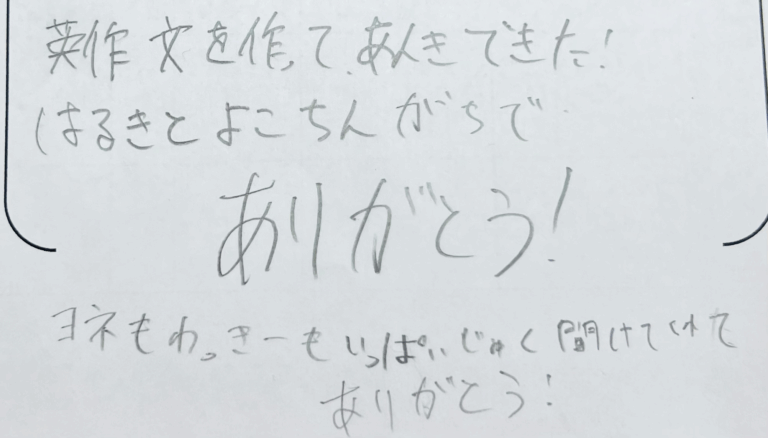 英作文を作って、あんきできた!
はるきとよこちん がちで
ありがとう!
ヨネもわっきーもいっぱいじゅく開けてくれて
ありがとう!